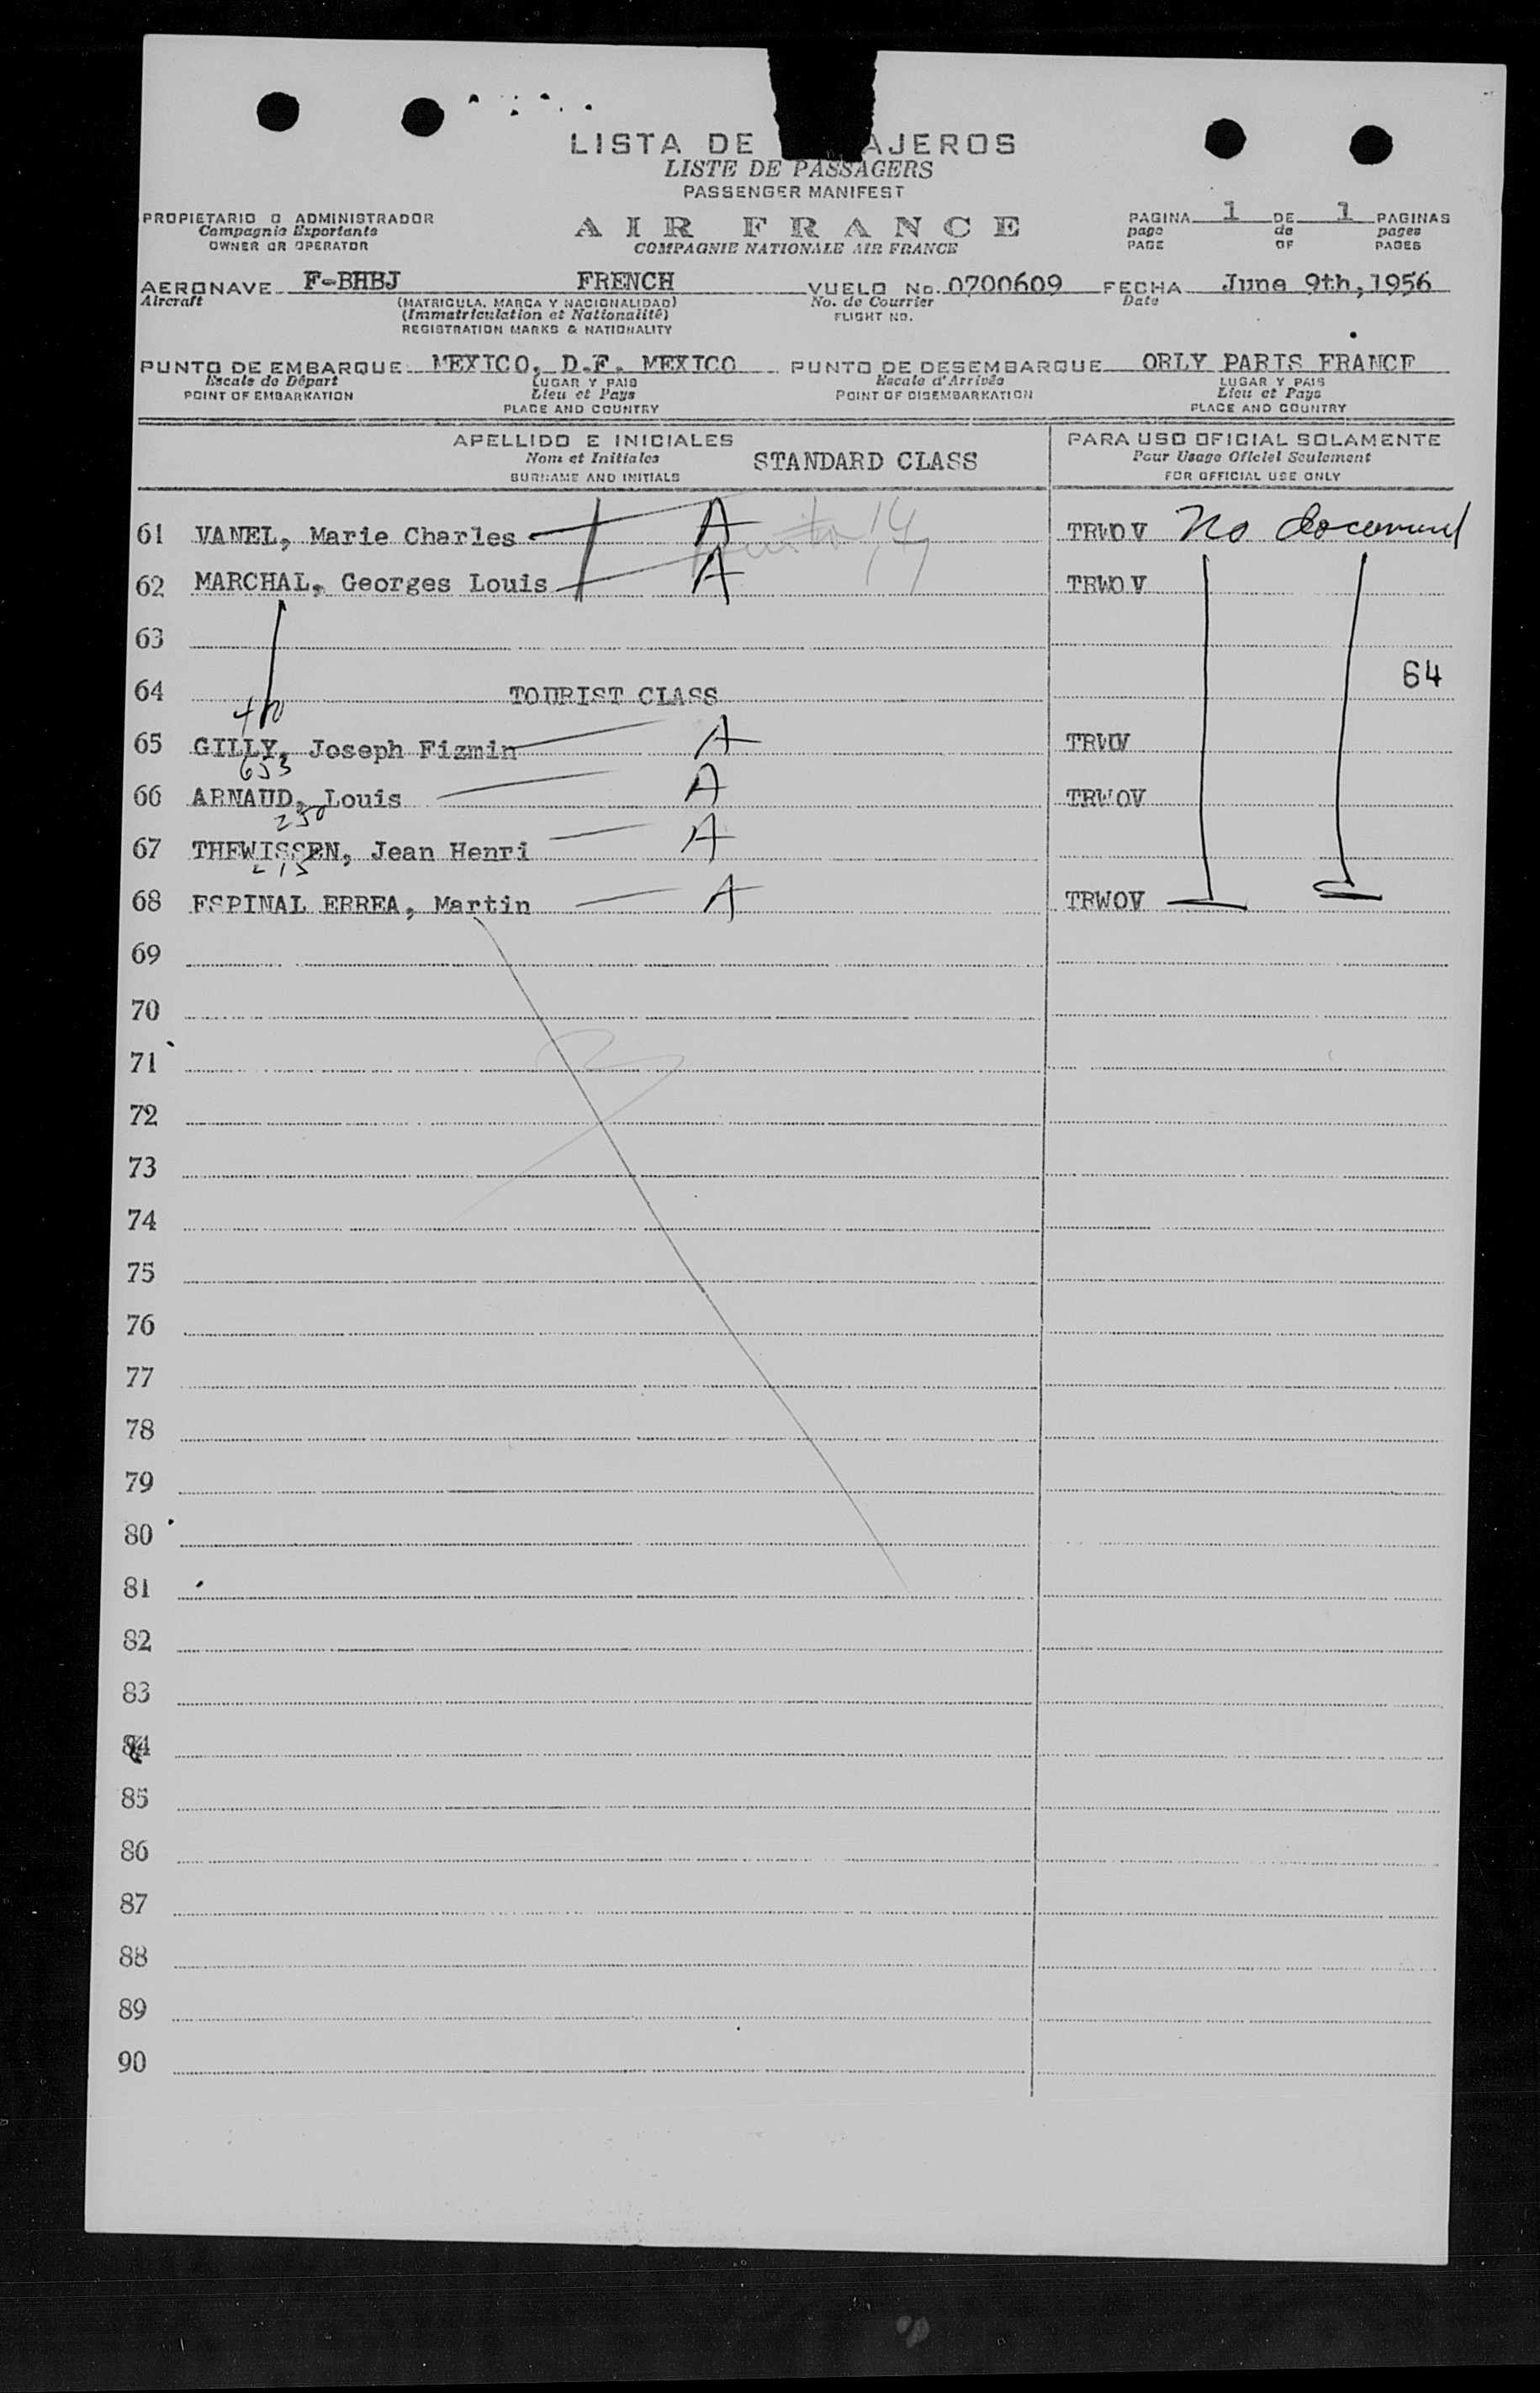 LISTA DE AJEROS
LISTE DE PASSAGERS
PASSENGER MANIFEST
PROPIETARIO O ADMINISTRADOR
Compagnie Exportante
OWNER OR OPERATOR
AIR FRANCE
COMPAGNIE NATIONALE AIR FRANCE
PAGINA 1 DE 1 PAGINAS
page de pages
PAGE OF PAGES
AERONAVE F-BHBJ FRENCH VUELO No. 0700609 FECHA June 9th, 1956
Aircraft (MATRICULA, MARCA Y NACIONALIDAD) No. de Courrier Date
(Immatriculation et Nationalité) FLIGHT NO.
REGISTRATION MARKS & NATIONALITY
PUNTO DE EMBARQUE MEXICO, D.F. MEXICO PUNTO DE DESEMBARQUE ORLY PARIS FRANCE
Escale de Départ LUGAR Y PAIS Escale d'Arrivée LUGAR Y PAIS
POINT OF EMBARKATION Lieu et Pays POINT OF DISEMBARKATION Lieu et Pays
PLACE AND COUNTRY PLACE AND COUNTRY
APELLIDO E INICIALES PARA USO OFICIAL SOLAMENTE
Nom et Initiales STANDARD CLASS Pour Usage Oficiel Seulement
SURNAME AND INITIALS FOR OFFICIAL USE ONLY
61 VANEL, Marie Charles A 14 TRWOV No document
62 MARCHAL, Georges Louis A 17 TRWOV
63
64 TOURIST CLASS 64
65 GILLY, Joseph Fizmin A TRWOV
653
66 ARNAUD, Louis A TRWOV
250
67 THEWISSEN, Jean Henri A
215
68 ESPINAL ERREA, Martin A TRWOV
69
70
71
72
73
74
75
76
77
78
79
80
81
82
83
84
85
86
87
88
89
90